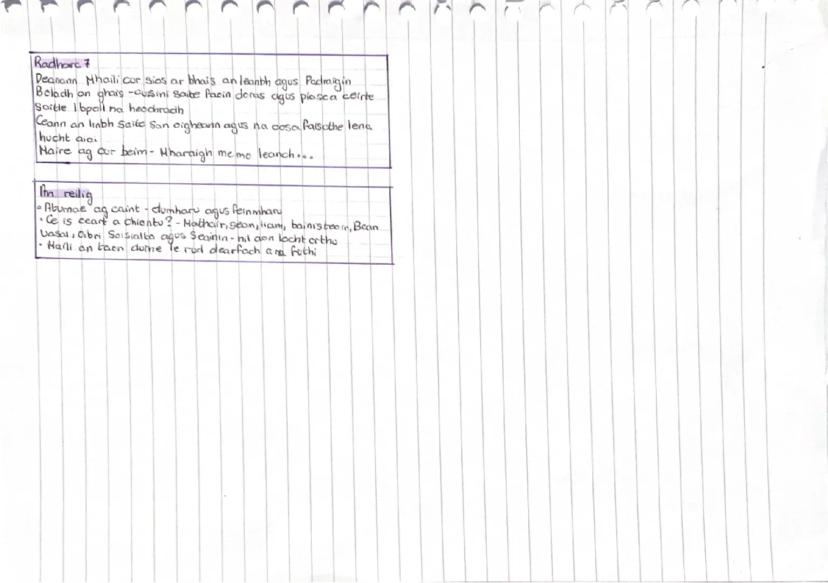 Radharc 7
Deanann Mhaili cur sios ar bhais an leanbh agus Padraigin
Boladh an ghais - cuisini saite faoin doras agus piosca ceirte
Saitle i bpoll na heochrach
Ceann an linbh saite san oigheann agus na cosa faiscthe lena
hucht aici
Maire ag cur beim - Mharaigh me mo leanch...
Im reilig
• Aturnae ag caint - dumharu agus feinmharu
• Ce is ceart a chiontu? - Mathair, Sean, Liam, bainisteoir, Bean
Uasal, Oibri Soisialta agus Seainin - nil aon locht orthu
• Maili an taen duine le rud dearfach ara futhi